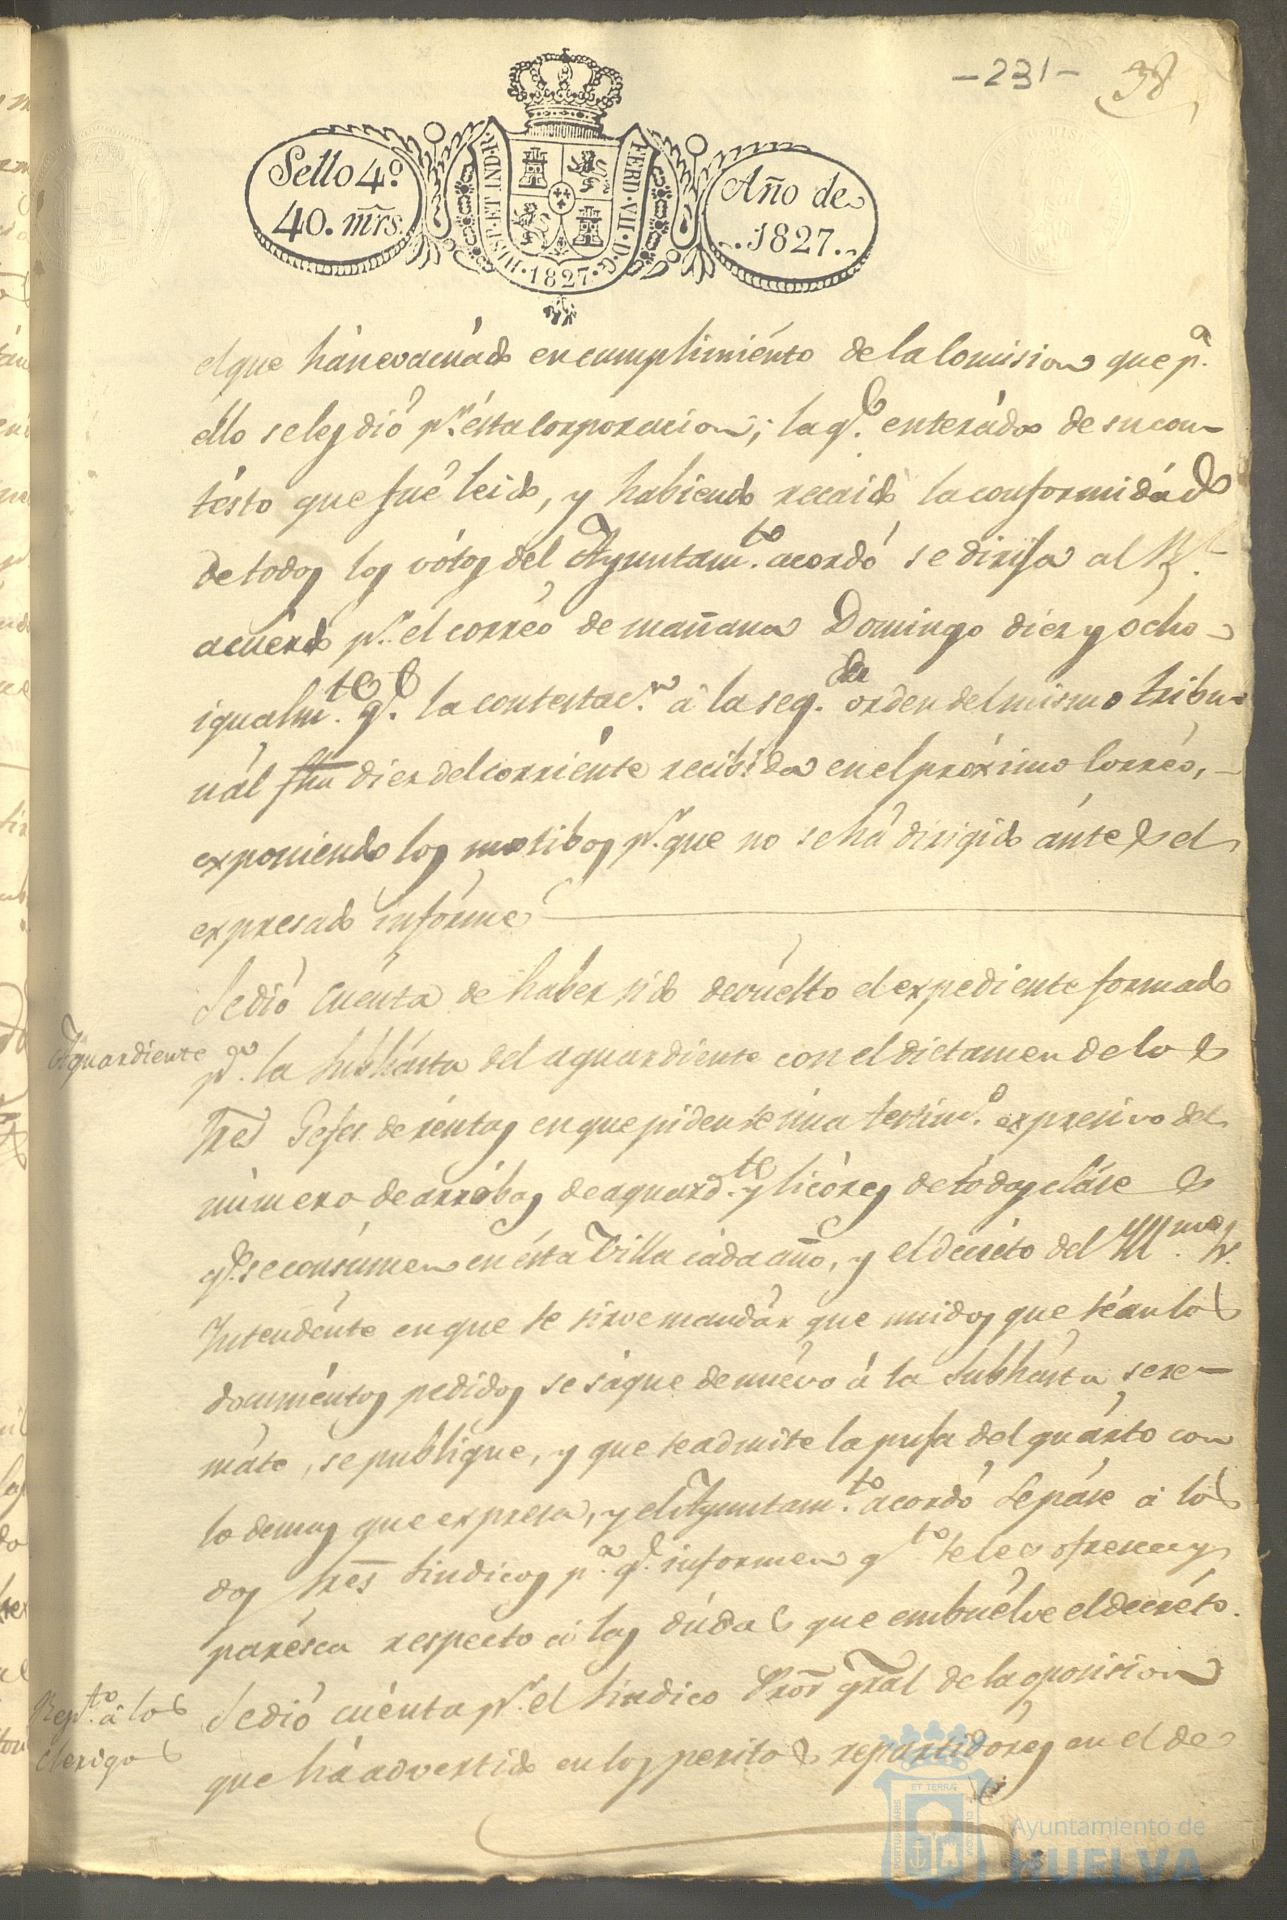 -231- 38
Sello 4º
40. mrs.
HISP. ET IND. R.
FERD. VII. D. G.
1827
Año de
1827.
el que hán evacuádo en cumplimiénto de la Comision que pª.
ello se les dió pr. ésta Corporacion; la qe. enterádos de su con-
tésto que fué leido, y habiendo recaido la conformidád
de todos los vótos del Ayuntamto. acordó se dirija al Rl.
acuérdo pr. el corréo de mañana Domingo diez y ocho
igualmte. qe. la contestacn. á la segda. orden del mismo tribu-
nál fha diez del corriénte recibida en el próximo Corréo,
exponiendo los motibos pr. que no se há dirigido ántes el
expresado infórme
Se dió cuénta de haber sido devuélto el expediente formado
Aguardiente
pª. la subhásta del aguardiente con el dictamen de los
Sres Gefes de réntas en que piden se úna testimº. expresivo del
número de arróbas de aguardte. y licóres de tódas cláse s
qe. se consúmen en ésta Villa cáda año, y el decréto del Illmo. Sr.
Intendénte en que se sirve mandár que unidos que séan los
documéntos pedidos se sáque de nuévo á la Subhásta se re-
máte, se publique, y que se admite la puja del quárto con
lo demas que expresa, y el Ayuntamto. acordó se páse á los
dos Sres Sindicos pª. qe. informen qto. se les ofrezca y
parésca respecto á las dúdas que embuélve el decréto.
Repto. á los
Clerigos
Se dió cuénta pr. el Sindico Pror gral de la oposision
que há advertido en los peritos repartidóres en el de
Ayuntamiento de
HUELVA